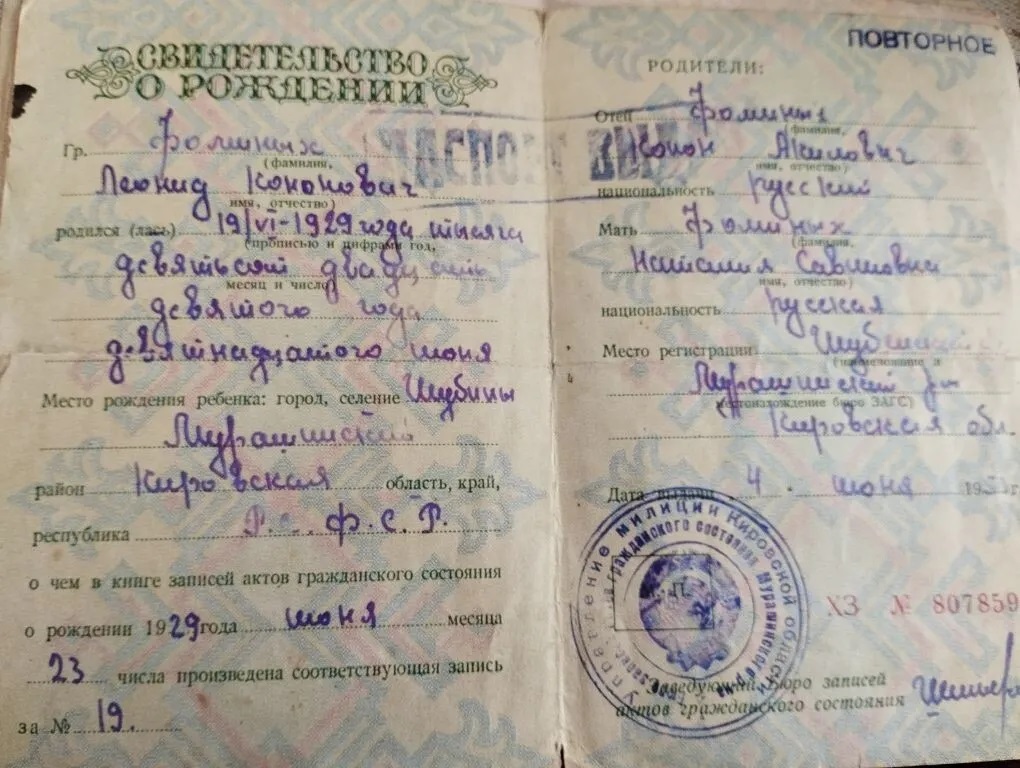 СВИДЕТЕЛЬСТВО
О РОЖДЕНИИ
Гр. Фоминых
(фамилия,
Леонид Кононович
имя, отчество)
родился (лась) 19/VI-1929 года тысяча
(прописью и цифрами год,
девятьсот двадцать
месяц и число)
девятого года
девятнадцатого июня
Место рождения ребенка: город, селение Шубины
Мурашинский
район Кировская область, край,
республика Р.С.Ф.С.Р.
о чем в книге записей актов гражданского состояния
о рождении 1929 года июня месяца
23 числа произведена соответствующая запись
за № 19.
ПОВТОРНОЕ
РОДИТЕЛИ:
Отец Фоминых
фамилия,
Конон Акилович
имя, отчество)
национальность русский
Мать Фоминых
(фамилия,
Наталия Савиловна
имя, отчество)
национальность русская
Место регистрации
(наименование и
Мурашинский
местонахождение бюро ЗАГС)
Кировская обл.
Дата выдачи 4 июня 195 г
ХЗ № 807859
Заведующий Бюро записей
актов гражданского состояния
ПАСПОРТ ВЫДАН
Управление милиции Кировской области
гражданского состояния Мурашинского